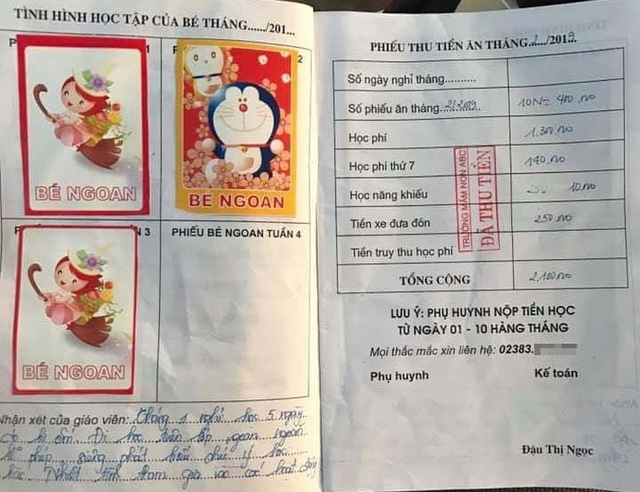 TÌNH HÌNH HỌC TẬP CỦA BÉ THÁNG....../201...
1
2
BÉ NGOAN
BÉ NGOAN
3
PHIẾU BÉ NGOAN TUẦN 4
BÉ NGOAN
Nhận xét của giáo viên: Tháng 1 nghỉ học 5 ngày
Đi học
phát biểu chú ý học
tham gia vào các hoạt động
PHIẾU THU TIỀN ĂN THÁNG 2/2019
Số ngày nghỉ tháng..........
Số phiếu ăn tháng 2/2019 10N = 400.000
Học phí 1.300.000
Học phí thứ 7 140.000
Học năng khiếu
Tiền xe đưa đón 250.000
Tiền truy thu học phí
TỔNG CỘNG 2.100.000
TRƯỜNG MẦM NON ABC
ĐÃ THU TIỀN
LƯU Ý: PHỤ HUYNH NỘP TIỀN HỌC
TỪ NGÀY 01 - 10 HÀNG THÁNG
Mọi thắc mắc xin liên hệ: 02383.
Phụ huynh Kế toán
Đậu Thị Ngọc